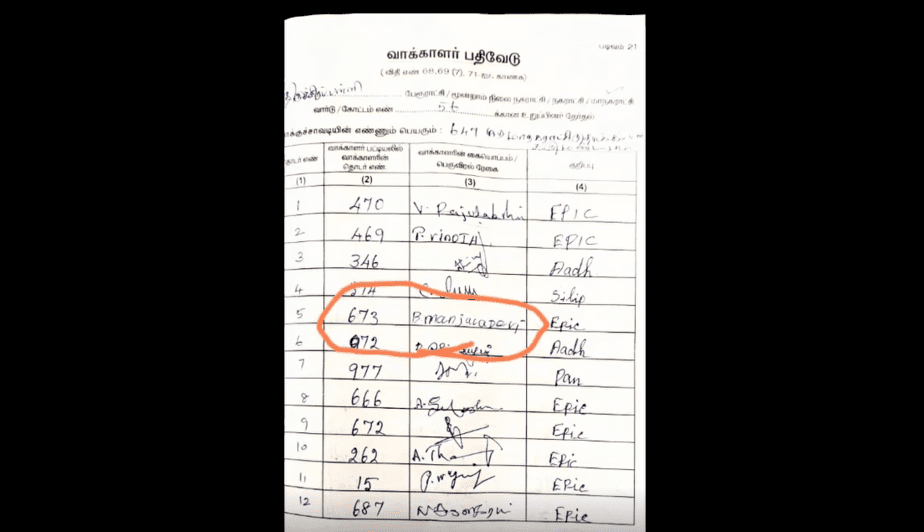 படிவம் 21
வாக்காளர் பதிவேடு
(விதி எண் 68,69 (7), 71-ஐக் காண்க)
பேரூராட்சி / மூன்றாம் நிலை நகராட்சி / நகராட்சி / மாநகராட்சி
வார்டு / கோட்டம் எண் 56 க்கான உறுப்பினர் தேர்தல்
வாக்குச்சாவடியின் எண்ணும் பெயரும் : 647
தொடர் எண் வாக்காளர் பட்டியலில் வாக்காளரின் தொடர் எண். வாக்காளரின் கையொப்பம் / பெருவிரல் ரேகை குறிப்பு
(1) (2) (3) (4)
1 470 V. Rajulakshmi EPIC
2 469 EPIC
3 346 Aadh
4 274 Silip
5 673 B manjuLADEVI Epic
6 972 Aadh
7 977 Pan
8 666 Epic
9 672 Epic
10 262 A. Tha Epic
11 15 Epic
12 687 Epic